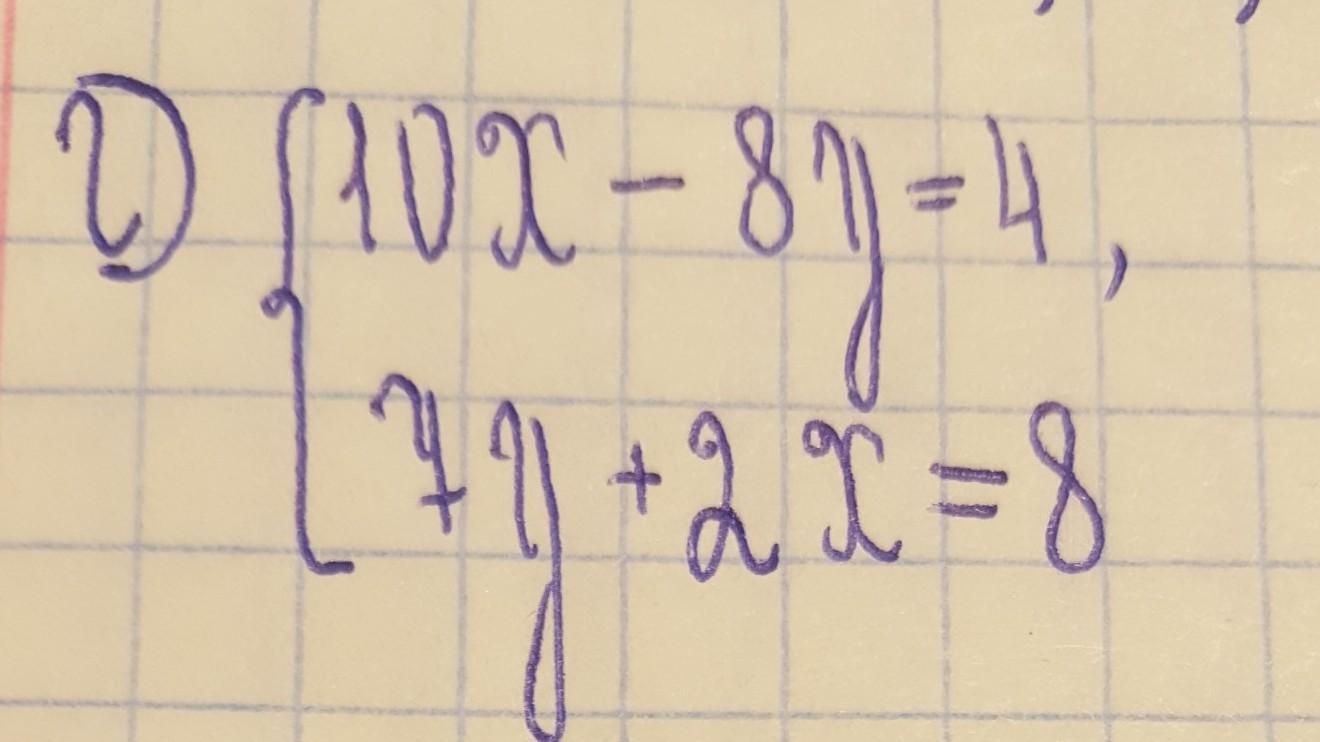 г) { 10x - 8y = 4,
7y + 2x = 8